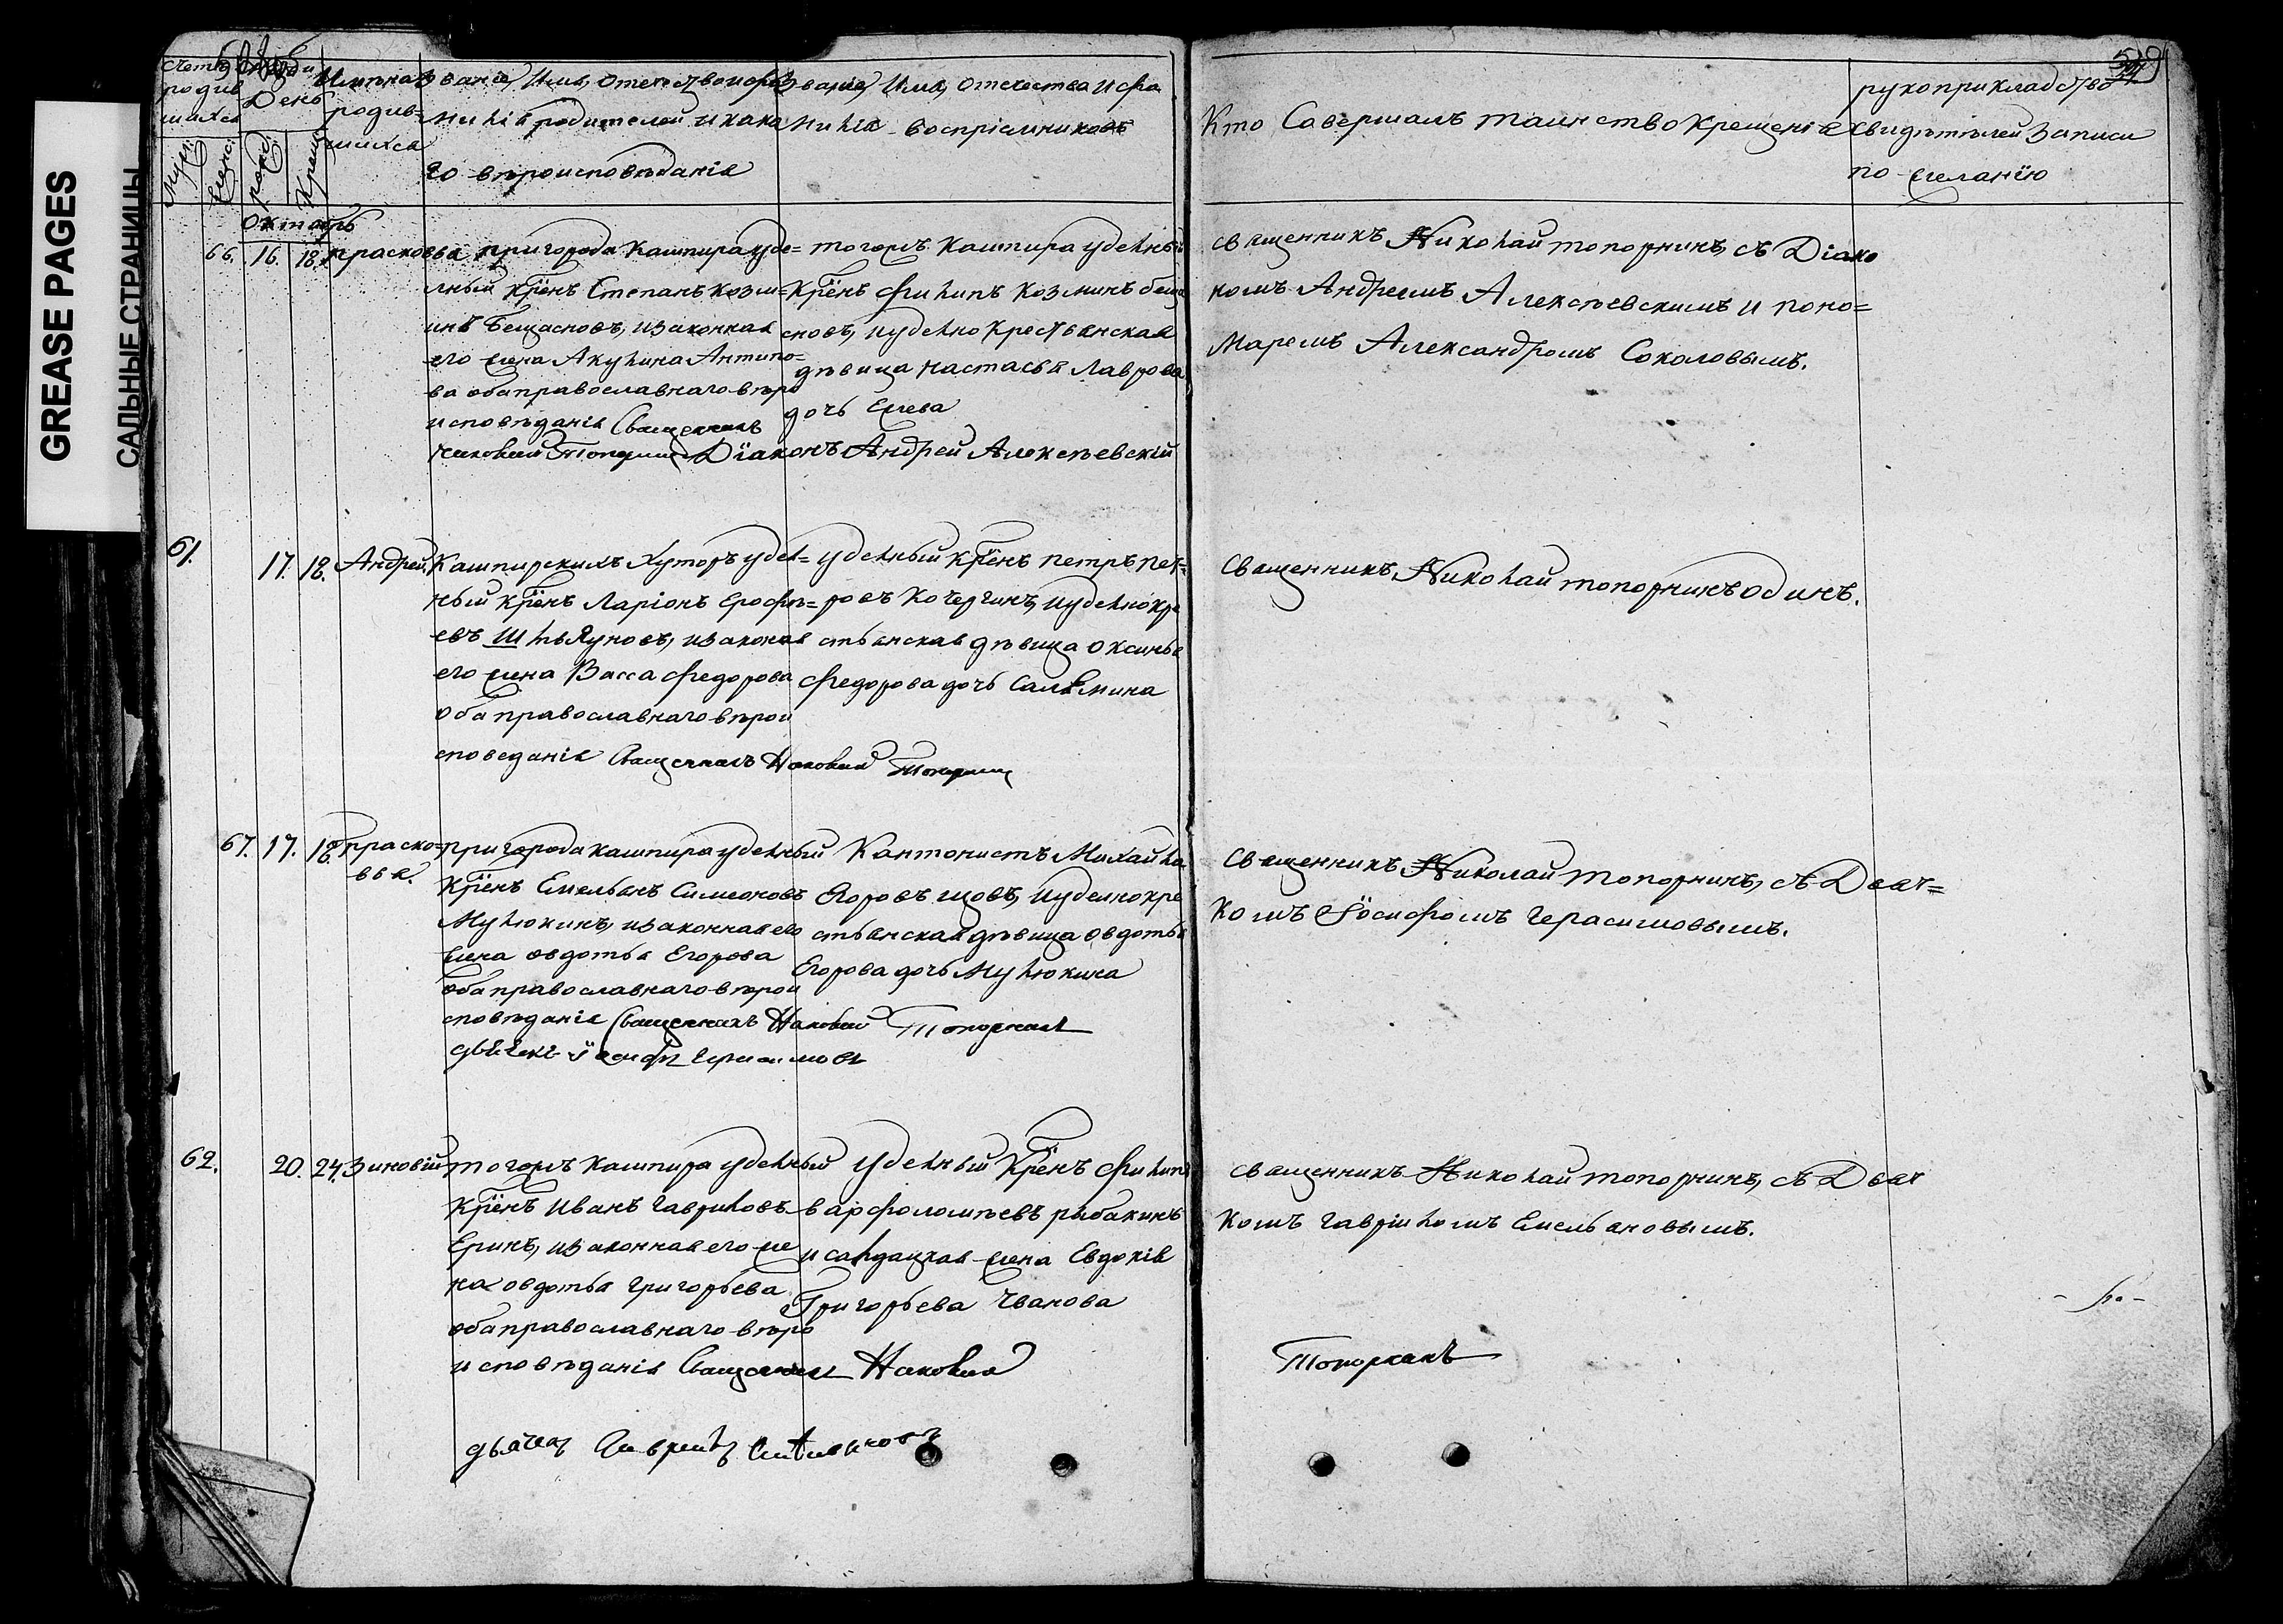 GREASE PAGES
САЛЬНЫЕ СТРАНИЦЫ
Счетъ родив шихся
Муж.
Женс.
День
рожд.
Крещ.
Имена родив= шихся
Званіе, Имя, Отечество и фа
миліи родителей и кака
го вѣроисповѣданія
Званіе, Имя, Отечества и фа
милія воспріемниковъ
Кто Совершалъ таинство Крещенія
рукоприкладство
свидѣтелей записи
по желанїю
529
Октябрь
66. 16. 18. Прасковья
пригорода Кашпира удѣ=
лный крёнъ Степанъ Козм=
инъ Бещасновъ, изаконная
его жена Акулина Антипо=
ва оба православнаго вѣро
исповѣданія Священникъ
Николай Топорнинъ Дїаконъ Андрей Алексѣевскій
тогожъ Кашпира уделный
Крёнъ Филипъ Козминъ беща
сновъ, иуделно Крестьянская
дѣвица Настасья Лаврова
дочь Ежева
священникъ Николай топорнинъ, съ Діако
номъ Андреемъ Алексѣевскимъ и поно=
маремъ Александромъ Соколовымъ.
61. 17. 18. Андрей.
Кашпирскихъ Хуторъ удел=
ный крёнъ Ларіонъ Ерофѣ=
евъ Шляпуновъ, изаконая
его жена Васса Федорова
оба православнаго вѣрои
споведанія Священникъ Николай Топорнинъ
уделный крёнъ петръ пет=
ровъ Кочергинъ, иуделнокре
стьянская дѣвица Оксинья
Федорова дочь Салмина
священникъ Николай топорнинъ одинъ.
67. 17. 18. Праско=
вья.
пригорода кашпира уделный
крёнъ Емельянъ Симеоновъ
Мулюкинъ, изаконная его
жена овдотья Егорова
оба православнаго вѣрои
сповѣданія Священникъ Николай Топорнинъ
дьячекъ Їосифъ Герасимовъ
Кантонистъ Михайла
Егоровъ щовъ, иуделнокре
стьянская дѣвица овдотья
Егорова дочь Мулюкина
священникъ Николай топорнинъ, съ Дьяч=
комъ Їосифомъ Герасимовымъ.
62. 20. 24. Зиновій
тогожъ кашпира уделный
крёнъ Иванъ Гавриловъ
Еринъ, изаконная его же
на овдотья григорьева
оба православнаго вѣро
исповѣданія Священникъ Николай
Топорнинъ
дьячекъ Гаврилъ Емельяновъ
уделный Крёнъ Филипъ
варфоломѣевъ рыбакинъ
и салдацкая жена Евдокія
Григорьева Чванова
священникъ Николай топорнинъ, съ Дьяч
комъ гавріиломъ Емельяновымъ.